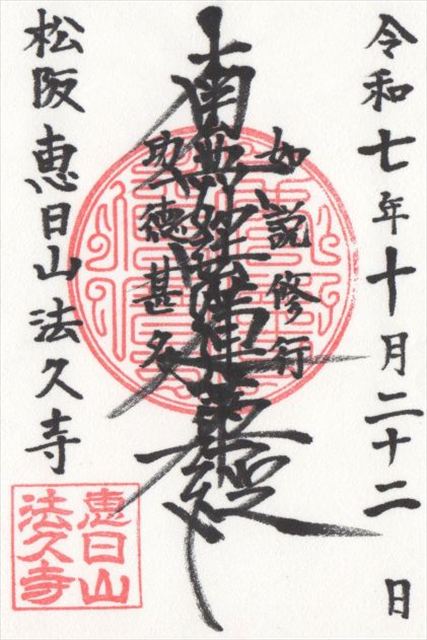 令和七年十月二十二日
如説修行
南無妙法蓮華経
功徳甚多
松阪 恵日山 法久寺
恵日山
法久寺